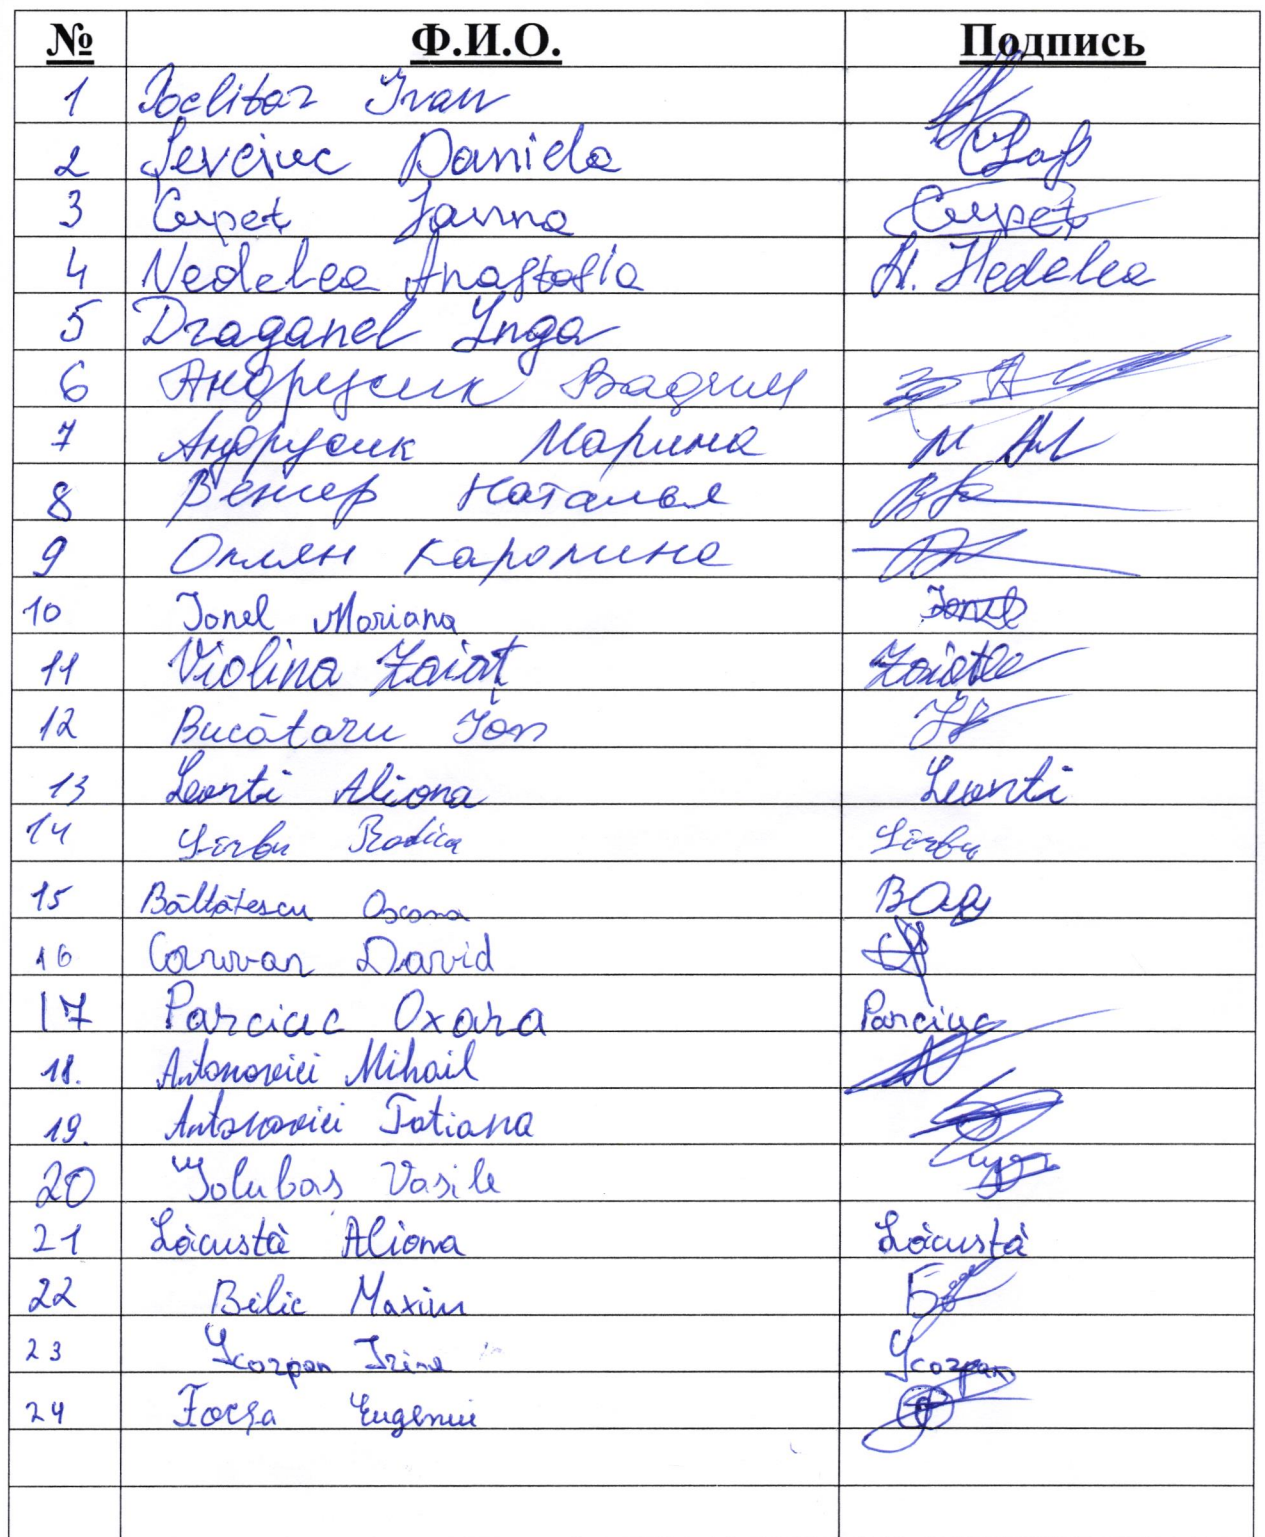 № Ф.И.О. Подпись
1 Ivan
2 Sevciuc Daniela
3 Cerpeț Janna Cerpeț
4 Nedelea Anastasia N. Nedelea
5 Draganel Inga
6 Андрусик Вадим
7 Андрусик Марина
8 Венгер Наталья
9 Оплян Каролина
10 Ionel Mariana Ionel
11 Violina Zaiaț
12 Bucătaru Ion
13 Leonti Aliona Leonti
14 Sîrbu Rodica Sîrbu
15 Băltătescu
16 David
17 Parciuc Oxana Parciuc
18. Antonovici Mihail
19. Antonovici Tatiana
20 Golubaș Vasile
21 Lăcustă Aliona Lăcustă
22 Bilic Maxim
23 Scorpan Irina Scorpan
24 Focșa Eugeniu